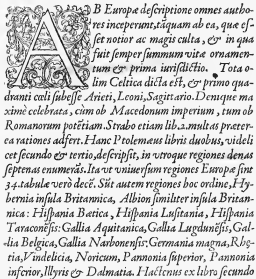 AB Europæ descriptione omnes autho-
res inceperunt, tãquam ab ea, quæ es-
set notior ac magis culta, & in qua
fuit semper summum vitæ ornamen-
tum & prima iurisdictio. Tota o-
lim Celtica dicta est, & primo qua-
dranti cœli subesse Arieti, Leoni, Sagittario. Denique ma
ximè celebrata, cùm ob Macedonum imperium, tum ob
Romanorum potẽtiam. Strabo etiam lib. 2. multas præter-
ea rationes adfert. Hanc Ptolemæus libris duobus, videli
cet secundo & tertio, descripsit, in vtroque regiones denas
septenas enumerãs. Ita vt vniuersum regiones Europæ sint
34. tabulæ verò decẽ. Sũt autem regiones hoc ordine, Hy-
bernia insula Britannica, Albion similiter insula Britan-
nica: Hispania Bætica, Hispania Lusitania, Hispania
Taraconẽsis: Gallia Aquitanica, Gallia Lugdunẽsis, Gal-
lia Belgica, Gallia Narbonensis: Germania magna, Rhę-
tia, Vindelicia, Noricum, Pannonia superior, Pannonia
inferior, Illyris & Dalmatia. Hactenus ex libro secundo